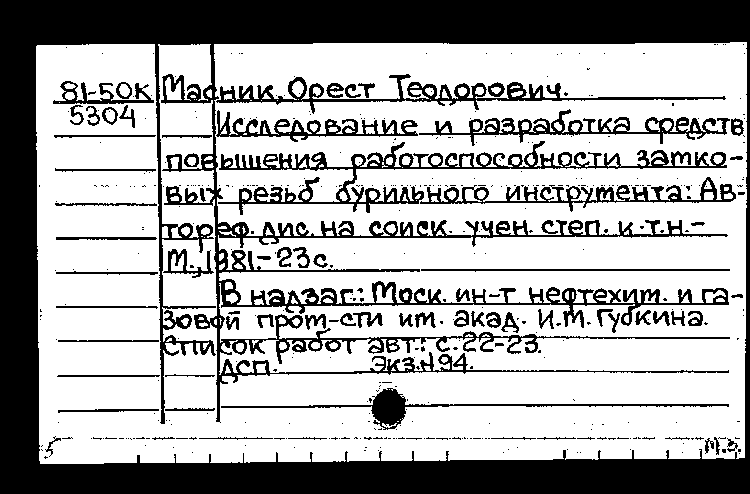 81-50К Масник, Орест Теодорович.
5304 Исследование и разработка средств
повышения работоспособности замко-
вых резьб бурильного инструмента: Ав-
тореф. дис. на соиск. учен. степ. к.т.н.-
М., 1981.-23с.
В надзаг.: Моск. ин-т нефтехим. и га-
зовой пром-сти им. акад. И.М. Губкина.
Список работ авт.: с. 22-23.
ДСП. Экз.н94.
5 м.з.